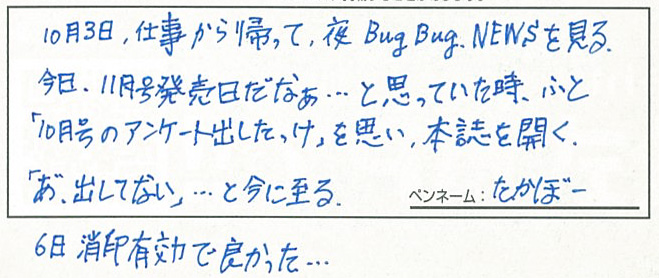 10月3日、仕事から帰って、夜 BugBug.NEWSを見る.
今日、11月号発売日だなぁ…と思っていた時、ふと
「10月号のアンケート出したっけ」を思い、本誌を開く.
「あ゛、出してない」…と今に至る.
ペンネーム：たかぼー
6日 消印有効で良かった…